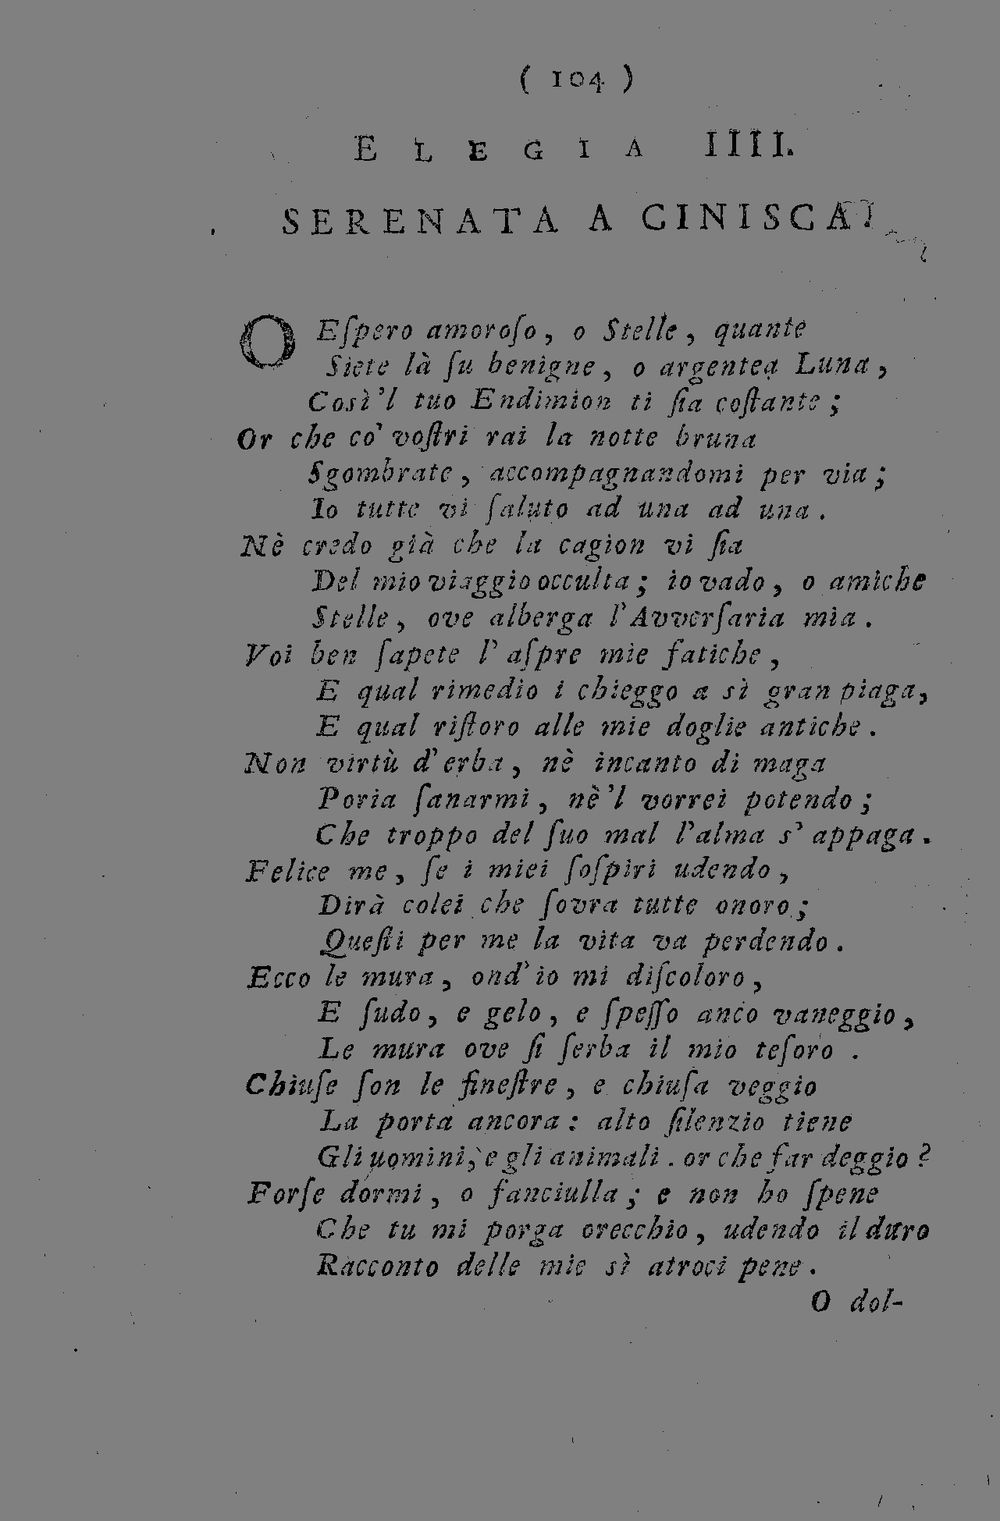 ( 104 )
ELEGIA IIII.
SERENATA A CINISCA.
O Eſpero amoroſo, o Stelle, quante
Siete là ſu benigne, o argentea Luna,
Così'l tuo Endimion ti ſia coſtante;
Or che co' voſtri rai la notte bruna
Sgombrate, accompagnandomi per via;
Io tutte vi ſaluto ad una ad una.
Nè credo già che la cagion vi ſia
Del mio viaggio occulta; io vado, o amiche
Stelle, ove alberga l'Avverſaria mia.
Voi ben ſapete l' aſpre mie fatiche,
E qual rimedio i chieggo a sì gran piaga,
E qual riſtoro alle mie doglie antiche.
Non virtù d'erba, nè incanto di maga
Poria ſanarmi, nè'l vorrei potendo;
Che troppo del ſuo mal l'alma s' appaga.
Felice me, ſe i miei ſoſpiri udendo,
Dirà colei che ſovra tutte onoro;
Queſti per me la vita va perdendo.
Ecco le mura, ond'io mi diſcoloro,
E ſudo, e gelo, e ſpeſſo anco vaneggio,
Le mura ove ſi ſerba il mio teſoro.
Chiuſe ſon le fineſtre, e chiuſa veggio
La porta ancora: alto ſilenzio tiene
Gli uomini, e gli animali. or che far deggio?
Forſe dormi, o fanciulla; e non ho ſpene
Che tu mi porga orecchio, udendo il duro
Racconto delle mie sì atroci pene.
O dol-